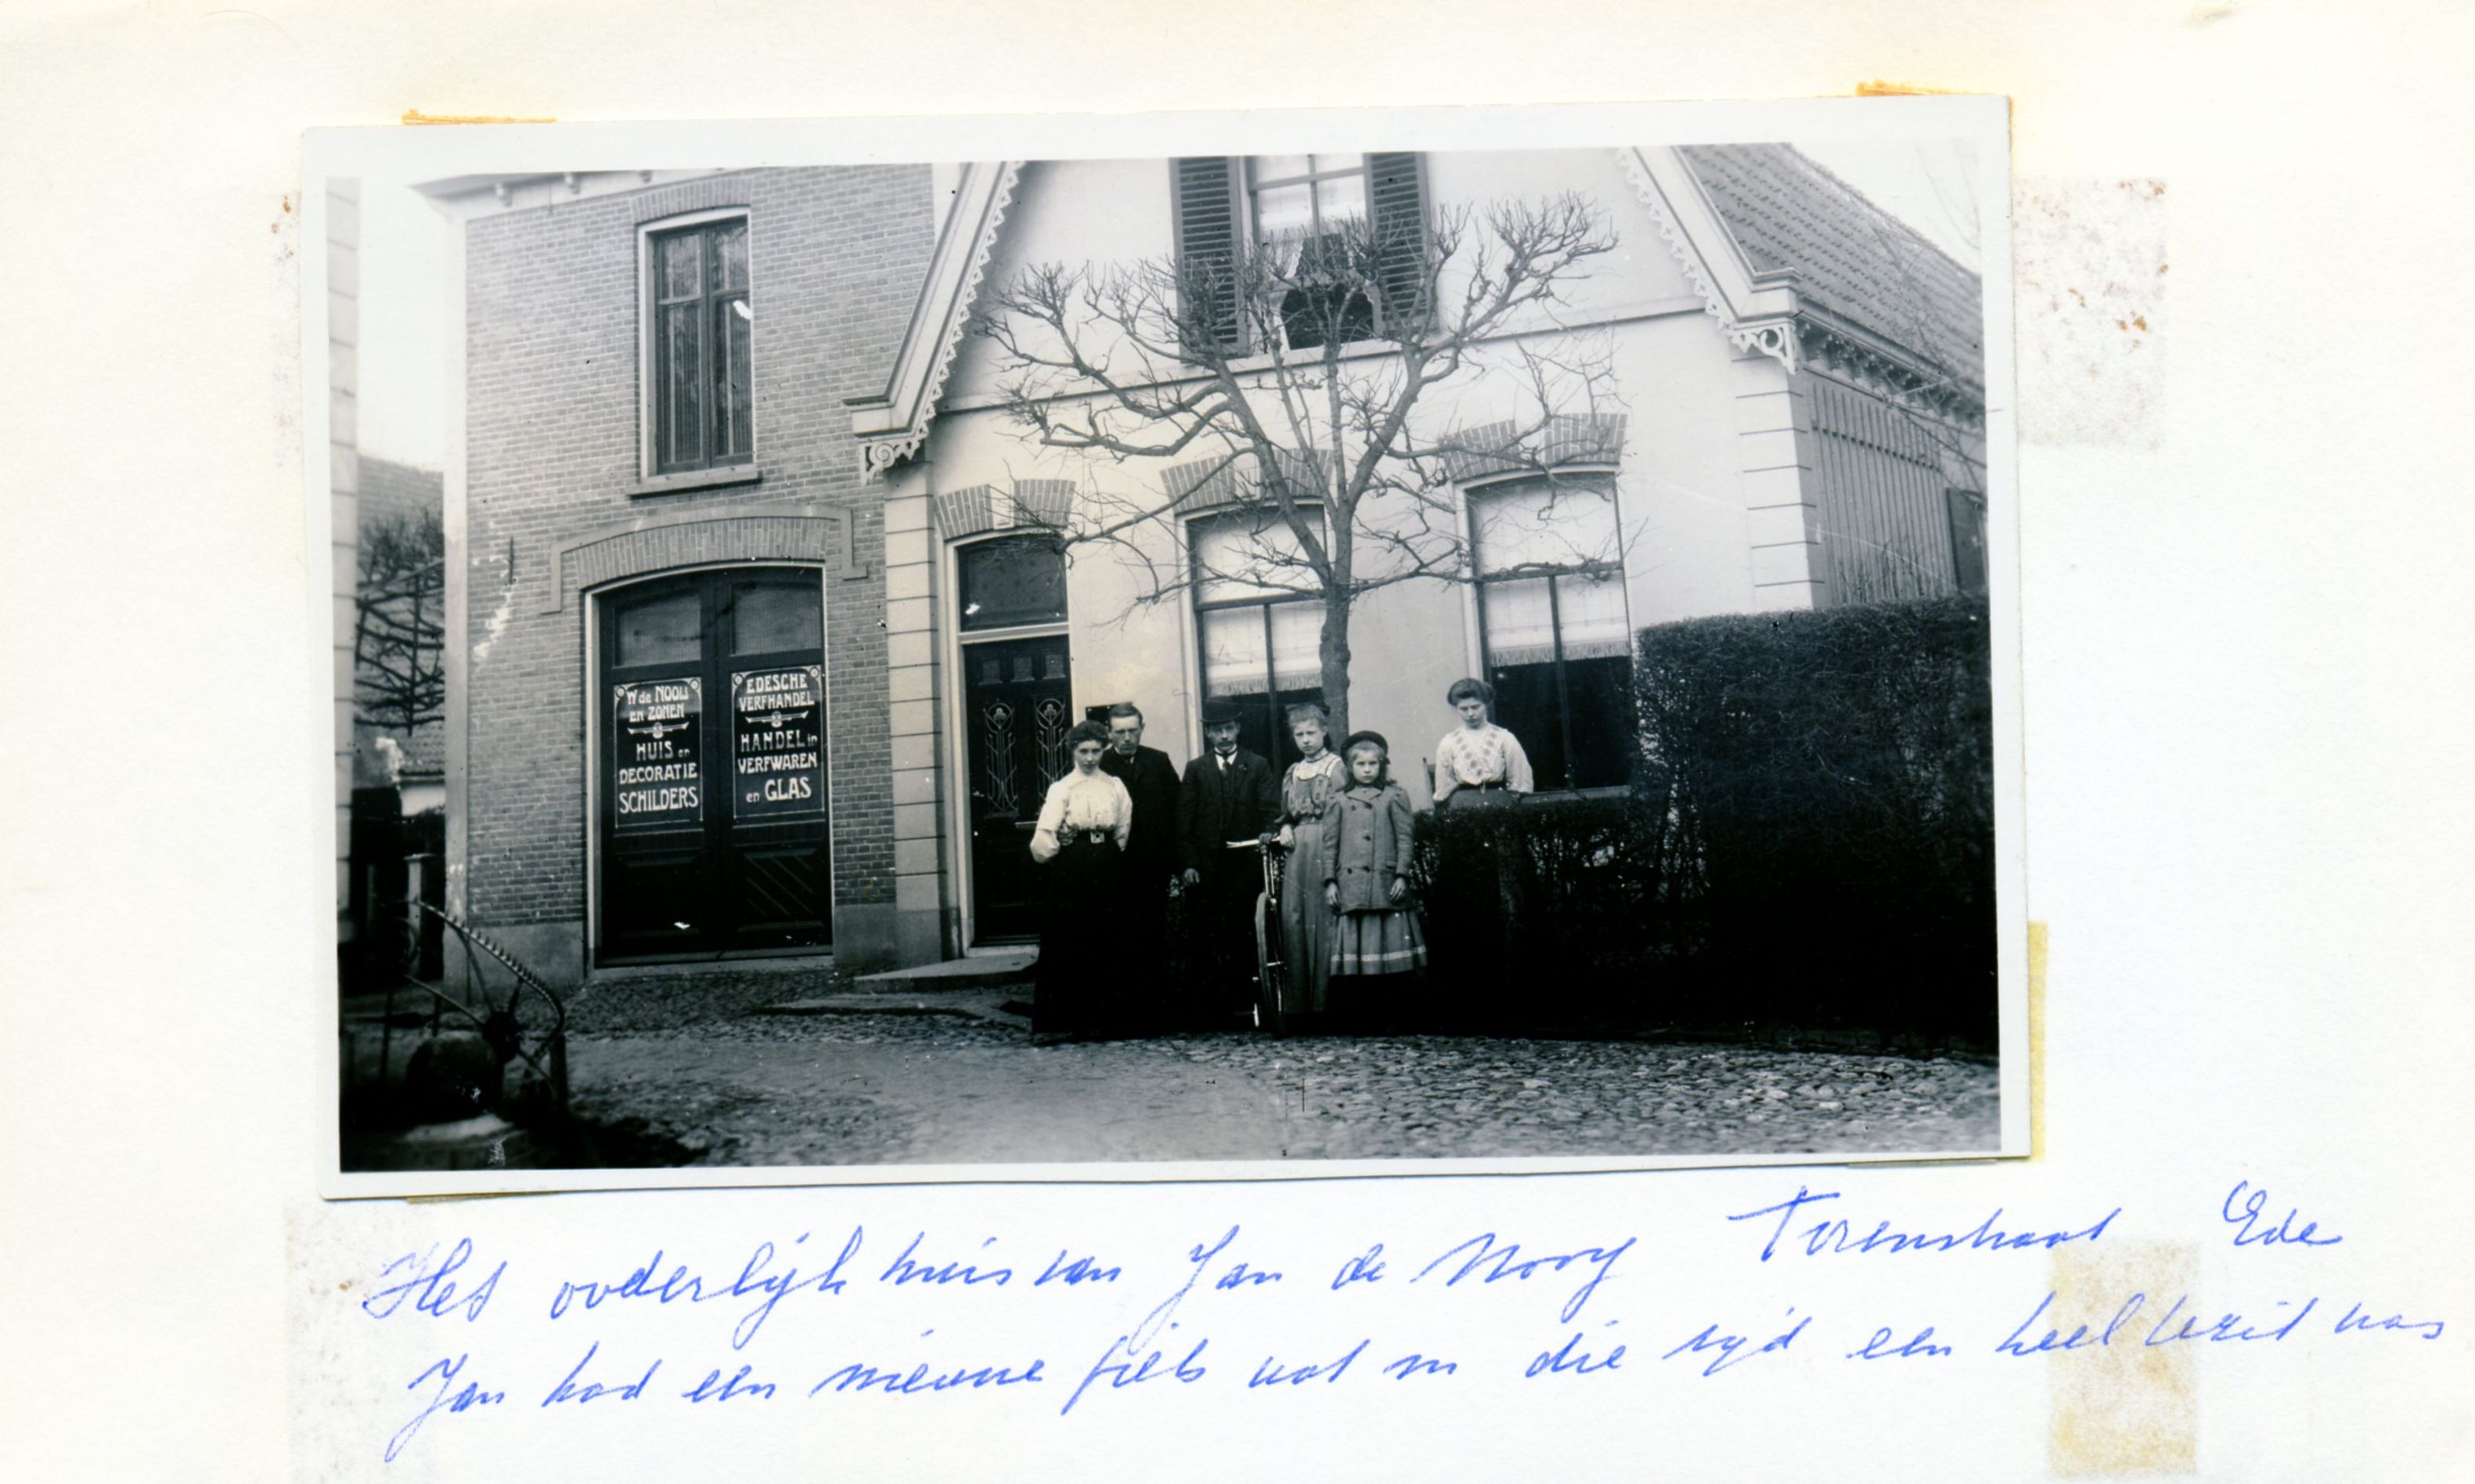 W de NOOIJ
EN ZONEN
HUIS en
DECORATIE
SCHILDERS
EDESCHE
VERFHANDEL
HANDEL in
VERFWAREN
en GLAS
Het ouderlijk huis van Jan de Nooy Torenstraat Ede
Jan had een nieuwe fiets wat in die tijd een heel bezit was